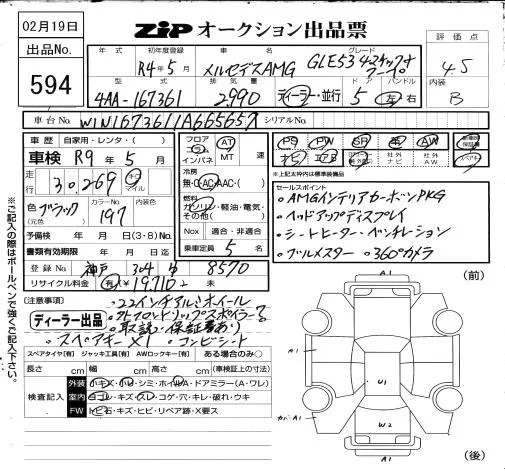 02月19日
出品No.
594
ZiP オークション出品票
年式 初年度登録 車名 グレード
R4年5月 メルセデスAMG GLE53 4マチック クーペ
評価点
4.5
内装
B
型式 排気量 ドア ハンドル
4AA-167361 2,990 ディーラー・並行 5 左・右
車台No. W1N1673611A665657 シリアルNo.
車歴 自家用・レンタ・( )
車検 R9年5月
走行 30,269 キロ マイル
色 ブラック (元色) カラーNo. 197 内装色
予備検有効期限 年 月 日(3・8)No.
書類有効期限 年 月 日
登録No. 神戸 304 8570
リサイクル料金 有 ¥19,710 未
フロア AT
インパネ MT 速
冷房
無・AC・AAC・( )
燃料
ガソリン・軽油・電気・
その他( )
Nox 適合・非適合
乗車定員 5 名
PS PW SR 革 AW 新車時保証書
ナビ エアB 社外ナビ 社外AW スペアキー
*上記太枠内は標準装備
セールスポイント
・AMGインテリアカーボンPKG
・ヘッドアップディスプレイ
・シートヒーター・ベンチレーション
・ブルメスター ・360°カメラ
(注意事項)
ディーラー出品
・22インチアルミホイール
・取説・保証書あり
・スペアキー×1 ・コンビシート
スペアタイヤ[有] ジャッキ工具[有] AWロックキー[有] ある場合のみ○
長さ cm 幅 cm 高さ cm (車検証上の寸法)
検査記入
外装 小キズ・小凹・シミ・ホイルA・ドアミラー(A・ワレ)
室内 ヨゴレ・キズ・スレ・コゲ・穴・キレ・破れ・ウキ
FW トビ石・キズ・ヒビ・リペア跡・X要ス
※ご記入の際はボールペンで強くご記入下さい。
(前)
A1
A1
A1
U1
カバA1
W2
A1
(後)